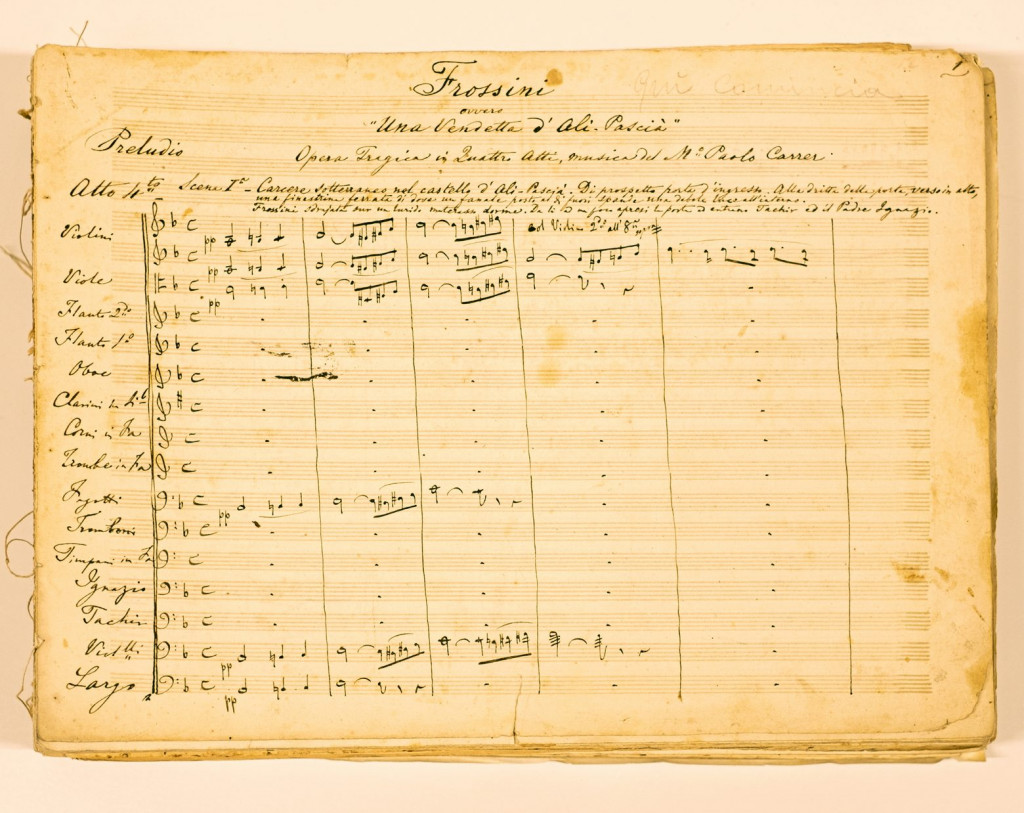 Frossini
1
ovvero
"Una Vendetta d' Ali-Pascià"
Preludio
Opera Tragica in Quattro Atti, musica del Mo Paolo Carrer
Atto 4to Scena Ia - Carcere sotterraneo nel castello d' Ali-Pascià. Di prospetto porta d'ingresso. Alla dritta della porta, verso in alto,
una finestrina ferrata di dove un fanale posto al di fuori spande una debole luce all'interno.
Frossini sdrajata sur un lurido materasso dorme. Da lì a m/s apresi la porta ed entrano Tachir ed il Padre Ignazio.
Violini
pp
col Violin 2do all' 8va
pp
Viole
pp
Flauto 2do
Flauto 1o
Oboe
Clarini in Sib
Corni in Fa
Trombe in Fa
Fagotti
pp
Tromboni
Timpani in Fa
Ignazio
Tachir
Viollli
pp
Largo
pp